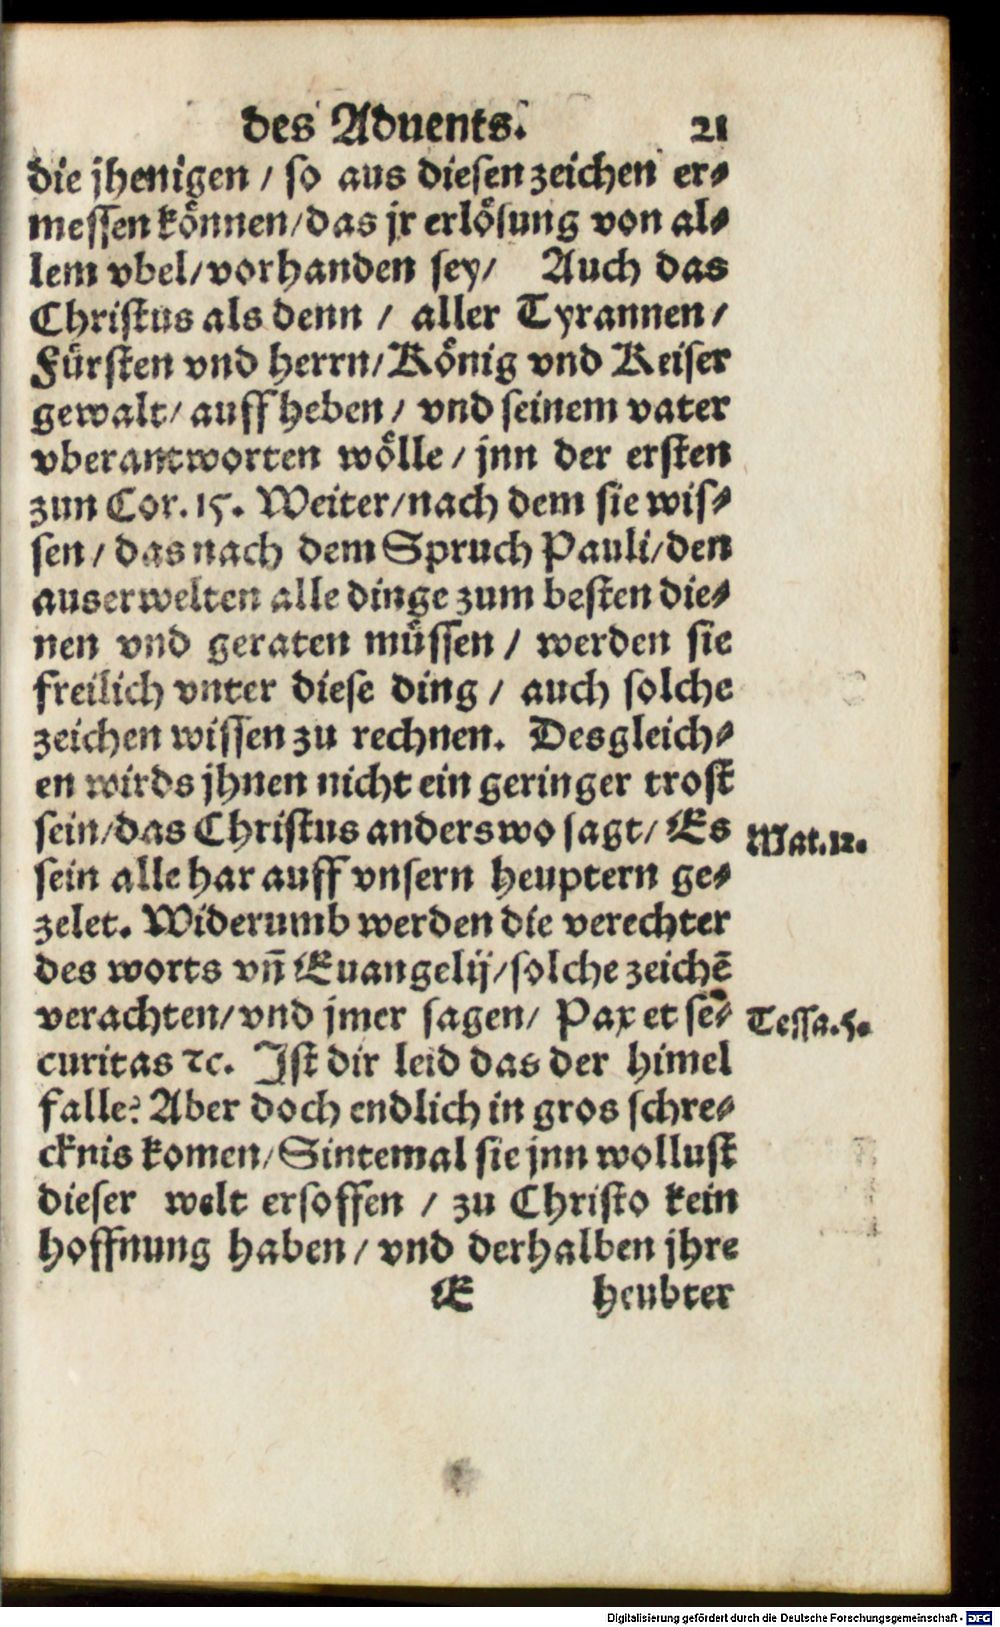 des Aduents. 21
die jhenigen / so aus diesen zeichen er⸗
messen können/das jr erlösung von al⸗
lem vbel/vorhanden sey/ Auch das
Christus als denn / aller Tyrannen/
Fürsten vnd herrn/König vnd Keiser
gewalt/ auff heben/ vnd seinem vater
vberantworten wölle / jnn der ersten
zun Cor. 15. Weiter/nach dem sie wis⸗
sen / das nach dem Spruch Pauli/den
auserwelten alle dinge zum besten die⸗
nen vnd geraten müssen / werden sie
freilich vnter diese ding / auch solche
zeichen wissen zu rechnen. Desgleich⸗
en wirds jhnen nicht ein geringer trost
sein/das Christus anderswo sagt/ Es Mat.12.
sein alle har auff vnsern heuptern ge⸗
zelet. Widerumb werden die verechter
des worts vñ Euangelij/solche zeichẽ
verachten/vnd jmer sagen/ Pax et se⸗ Tessa.5.
curitas ⁊c. Ist dir leid das der himel
falle? Aber doch endlich in gros schre⸗
cknis komen/Sintemal sie jnn wollust
dieser welt ersoffen / zu Christo kein
hoffnung haben/ vnd derhalben jhre
E heubter
Digitalisierung gefördert durch die Deutsche Forschungsgemeinschaft - DFG